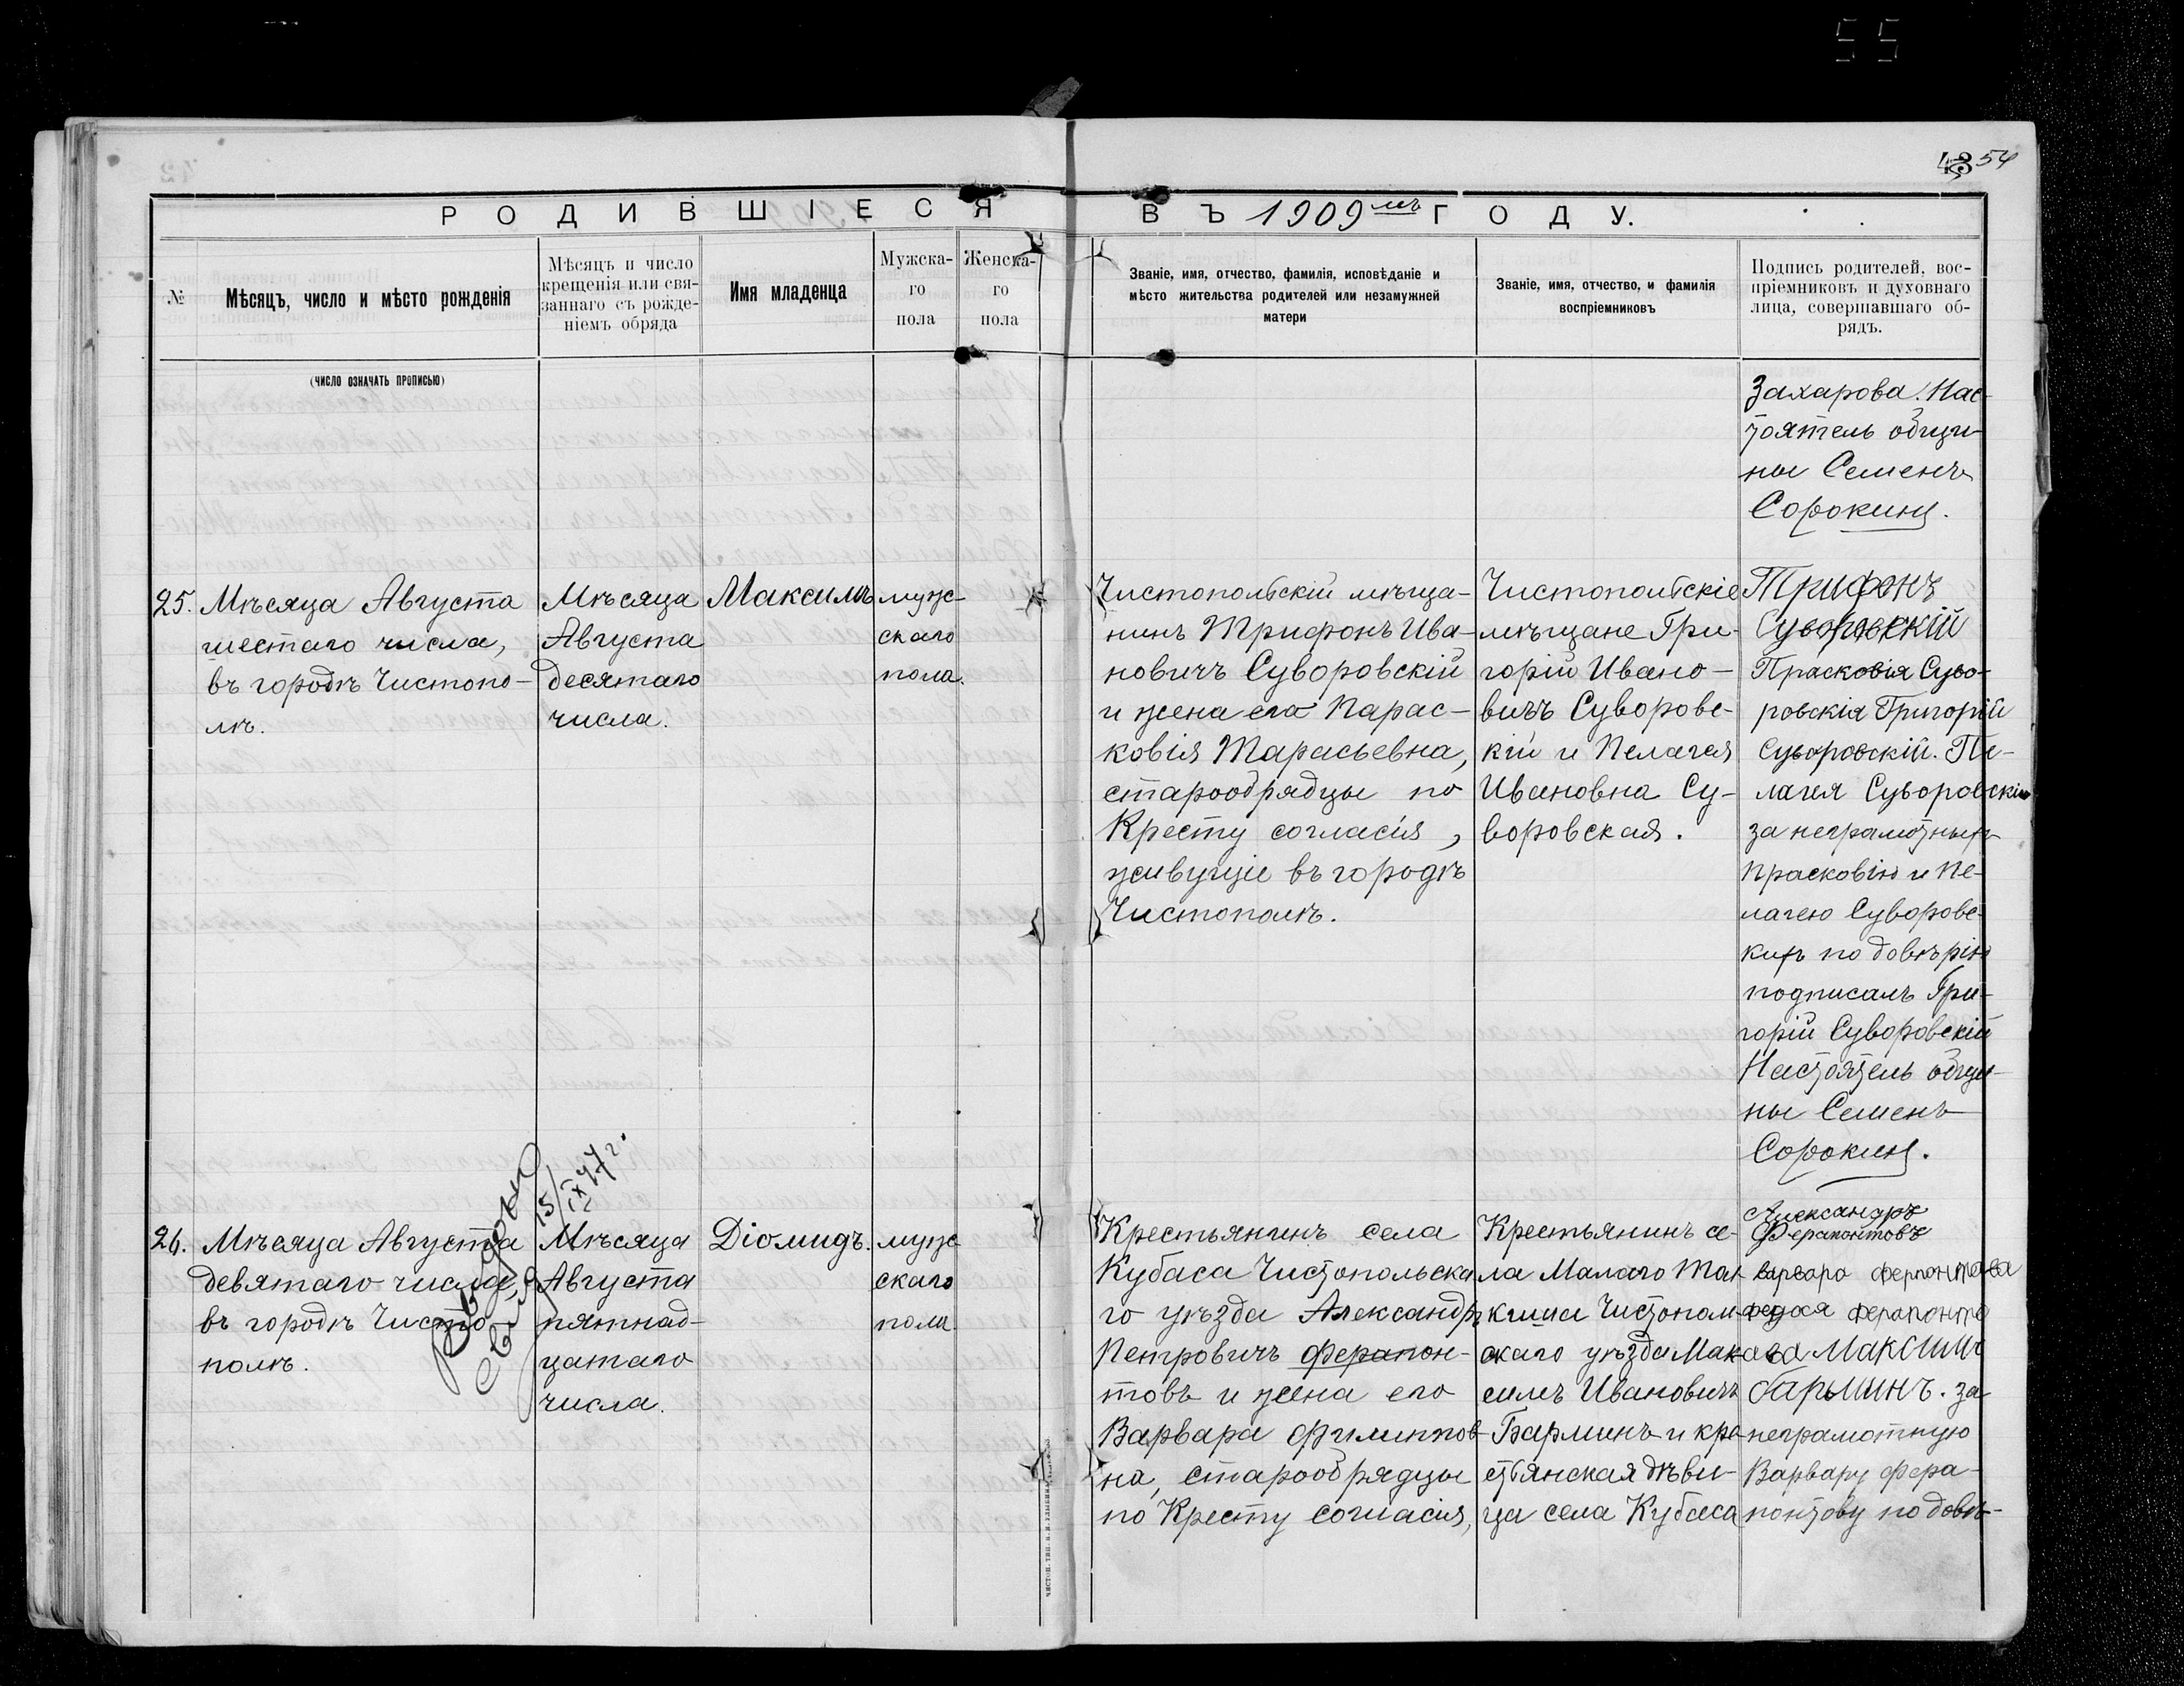 55
43 54
РОДИВШІЕСЯ ВЪ 1909мъ ГОДУ.
№
Мѣсяцъ, число и мѣсто рожденія
Мѣсяцъ и число
крещенія или свя-
заннаго съ рожде-
ніемъ обряда
Имя младенца
Мужска-
го
пола
Женска-
го
пола
Званіе, имя, отчество, фамилія, исповѣданіе и
мѣсто жительства родителей или незамужней
матери
Званіе, имя, отчество, и фамилія
воспріемниковъ
Подпись родителей, вос-
пріемниковъ и духовнаго
лица, совершавшаго об-
рядъ.
(ЧИСЛО ОЗНАЧАТЬ ПРОПИСЬЮ)
Захарова. Нас-
тоятель общи-
ны Семенъ
Сорокинъ.
25.
Мѣсяца Августа
шестаго числа,
въ городѣ Чистопо-
лѣ.
Мѣсяца
Августа
десятаго
числа.
Максимъ
муж-
скаго
пола.
Чистопольскій мѣща-
нинъ Трифонъ Ива-
новичъ Суворовскій
и жена его Парас-
ковія Тарасьевна,
старообрядцы по
Кресту согласія,
живущіе въ городѣ
Чистополѣ.
Чистопольскіе
мѣщане Гри-
горій Ивано-
вичъ Суворовс-
кій и Пелагея
Ивановна Су-
воровская.
Трифонъ
Суворовскій
Прасковія Суво-
ровскія Григорій
Суворовскій. Пе-
лагея Суворовскія
за неграмотныхъ
Прасковію и Пе-
лагею Суворовс-
кихъ по довѣрію
подписалъ Гри-
горій Суворовскій
Настоятель общи-
ны Семенъ
Сорокинъ.
26.
Мѣсяца Августа
девятаго числа,
въ городѣ Чисто-
полѣ.
15/IX 47 г.
Мѣсяца
Августа
пятнад-
цатаго
числа.
Діомидъ.
муж-
скаго
пола.
Крестьянинъ села
Кубаса Чистопольска-
го уѣзда Александръ
Петровичъ Ферапон-
товъ и жена его
Варвара Филиппов-
на, старообрядцы
по Кресту согласія,
Крестьянинъ се-
ла Малаго Тол-
киша Чистополь-
скаго уѣзда Мак-
симъ Ивановичъ
Барминъ и кре-
стьянская дѣви-
ца села Кубаса
Александръ
Ферапонтовъ
варвара ферпонтова
федося ферапонто
ва Максимъ
барминъ. за
неграмотную
Варвару Фера-
понтову по довѣ-